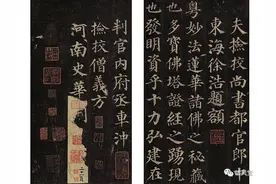 夫撿挍尚書都官郎
東海徐浩題額
粵妙法蓮華諸佛之秘藏
也多寶佛塔證經之踴現
也發明資乎十力弘建在
判官內府丞車沖
撿挍僧義方
河南史華刻